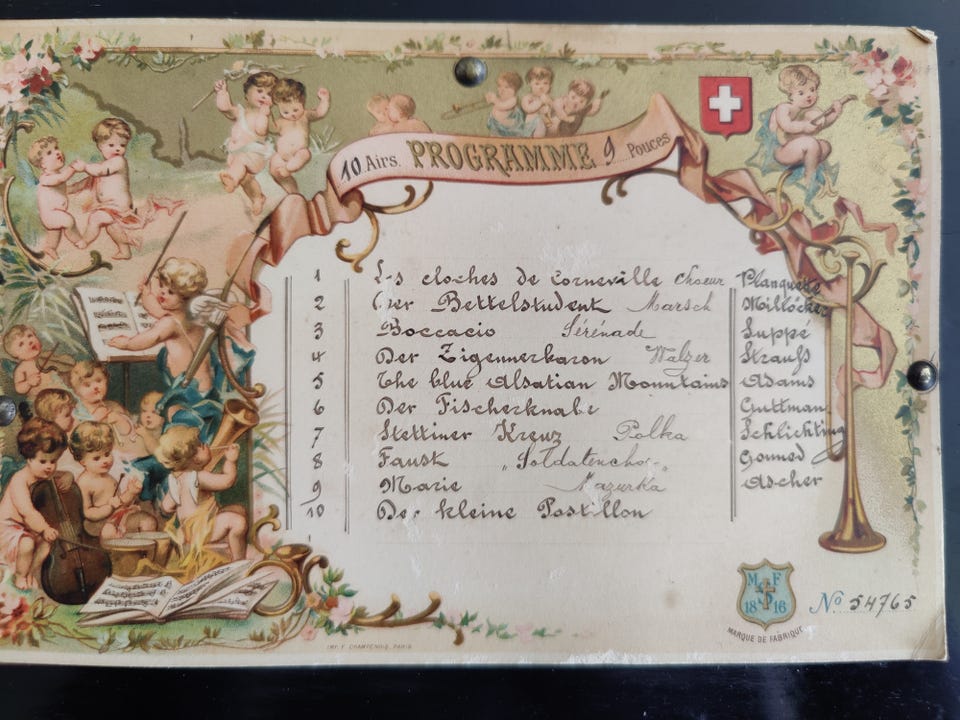 10 Airs. PROGRAMME 9 Pouces
1 Les cloches de Corneville Choeur Planquette
2 Der Bettelstudent Marsch Millöcker
3 Boccacio Sérénade Suppé
4 Der Zigeunerbaron Walzer Strauß
5 The blue Alsatian Mountains Adams
6 Der Fischerknabe Guttman
7 Stettiner Kreuz Polka Schlichting
8 Faust „Soldatenchor„ Gounod
9 Marie Mazurka Ascher
10 Der kleine Postillon
M F
18 16
MARQUE DE FABRIQUE
No 54765
IMP. F. CHAMPENOIS, PARIS